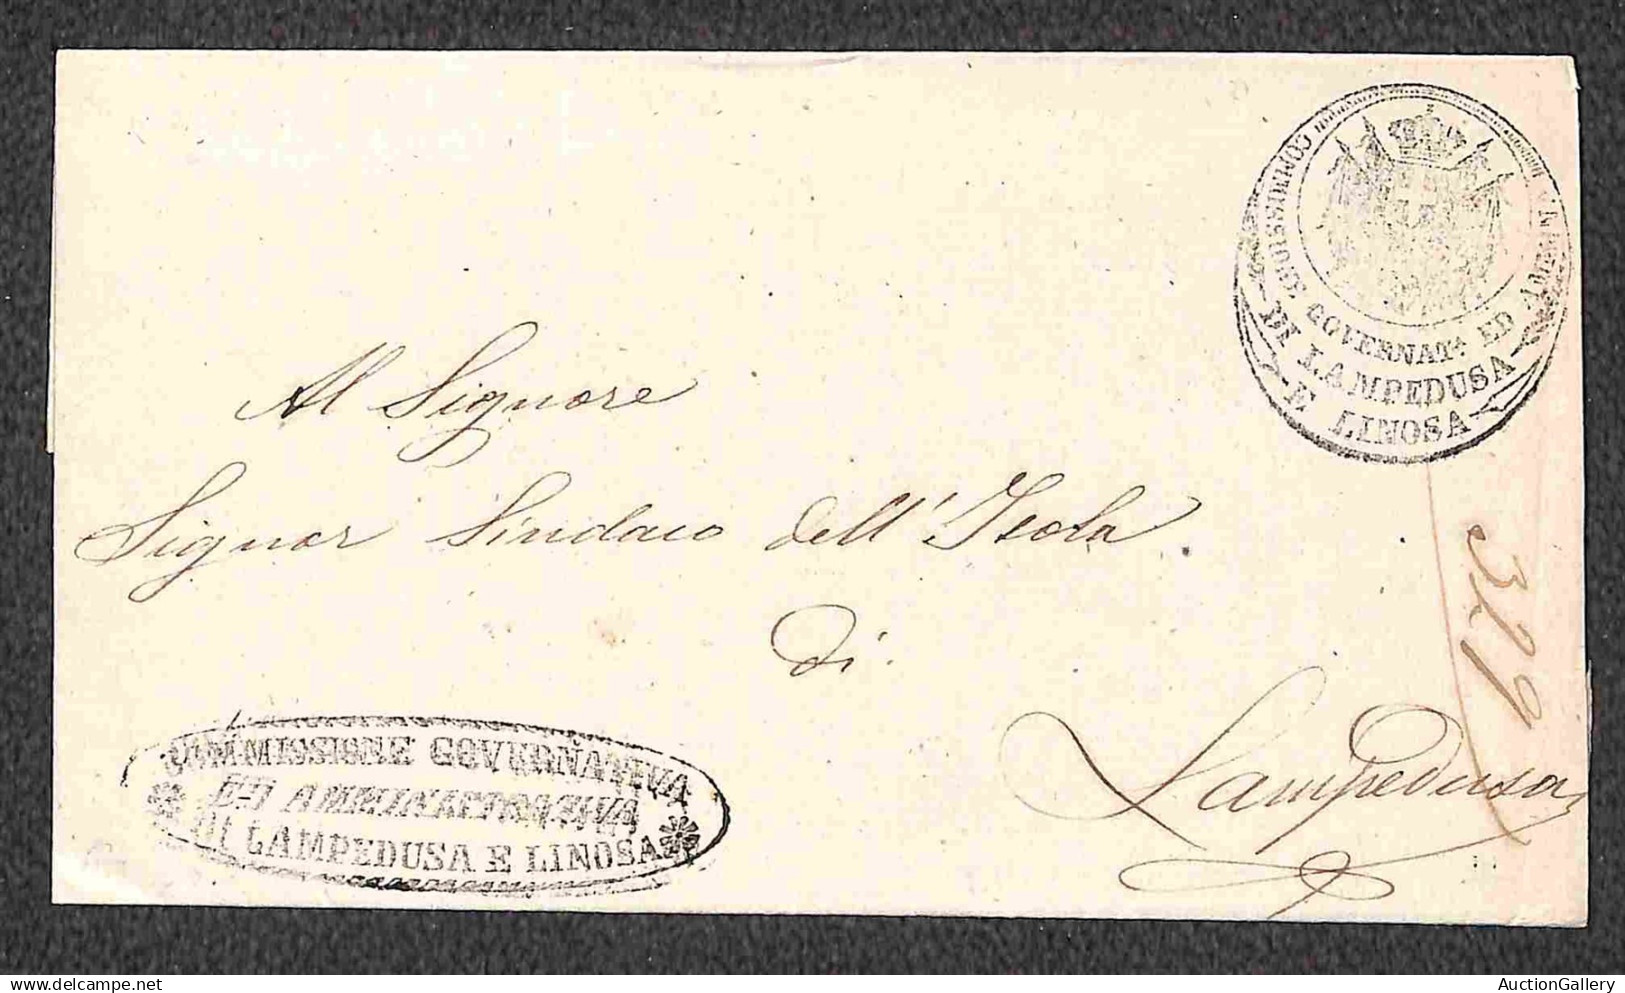 COMMISSIONE GOVERNAT.ª ED
DI LAMPEDUSA
E LINOSA
Al Signore
Signor Sindaco dell'Isola
di
Lampedusa
329
COMMISSIONE GOVERNATIVA
ED AMMINISTRATIVA
DI LAMPEDUSA E LINOSA
delcampe.net
AuctionGallery